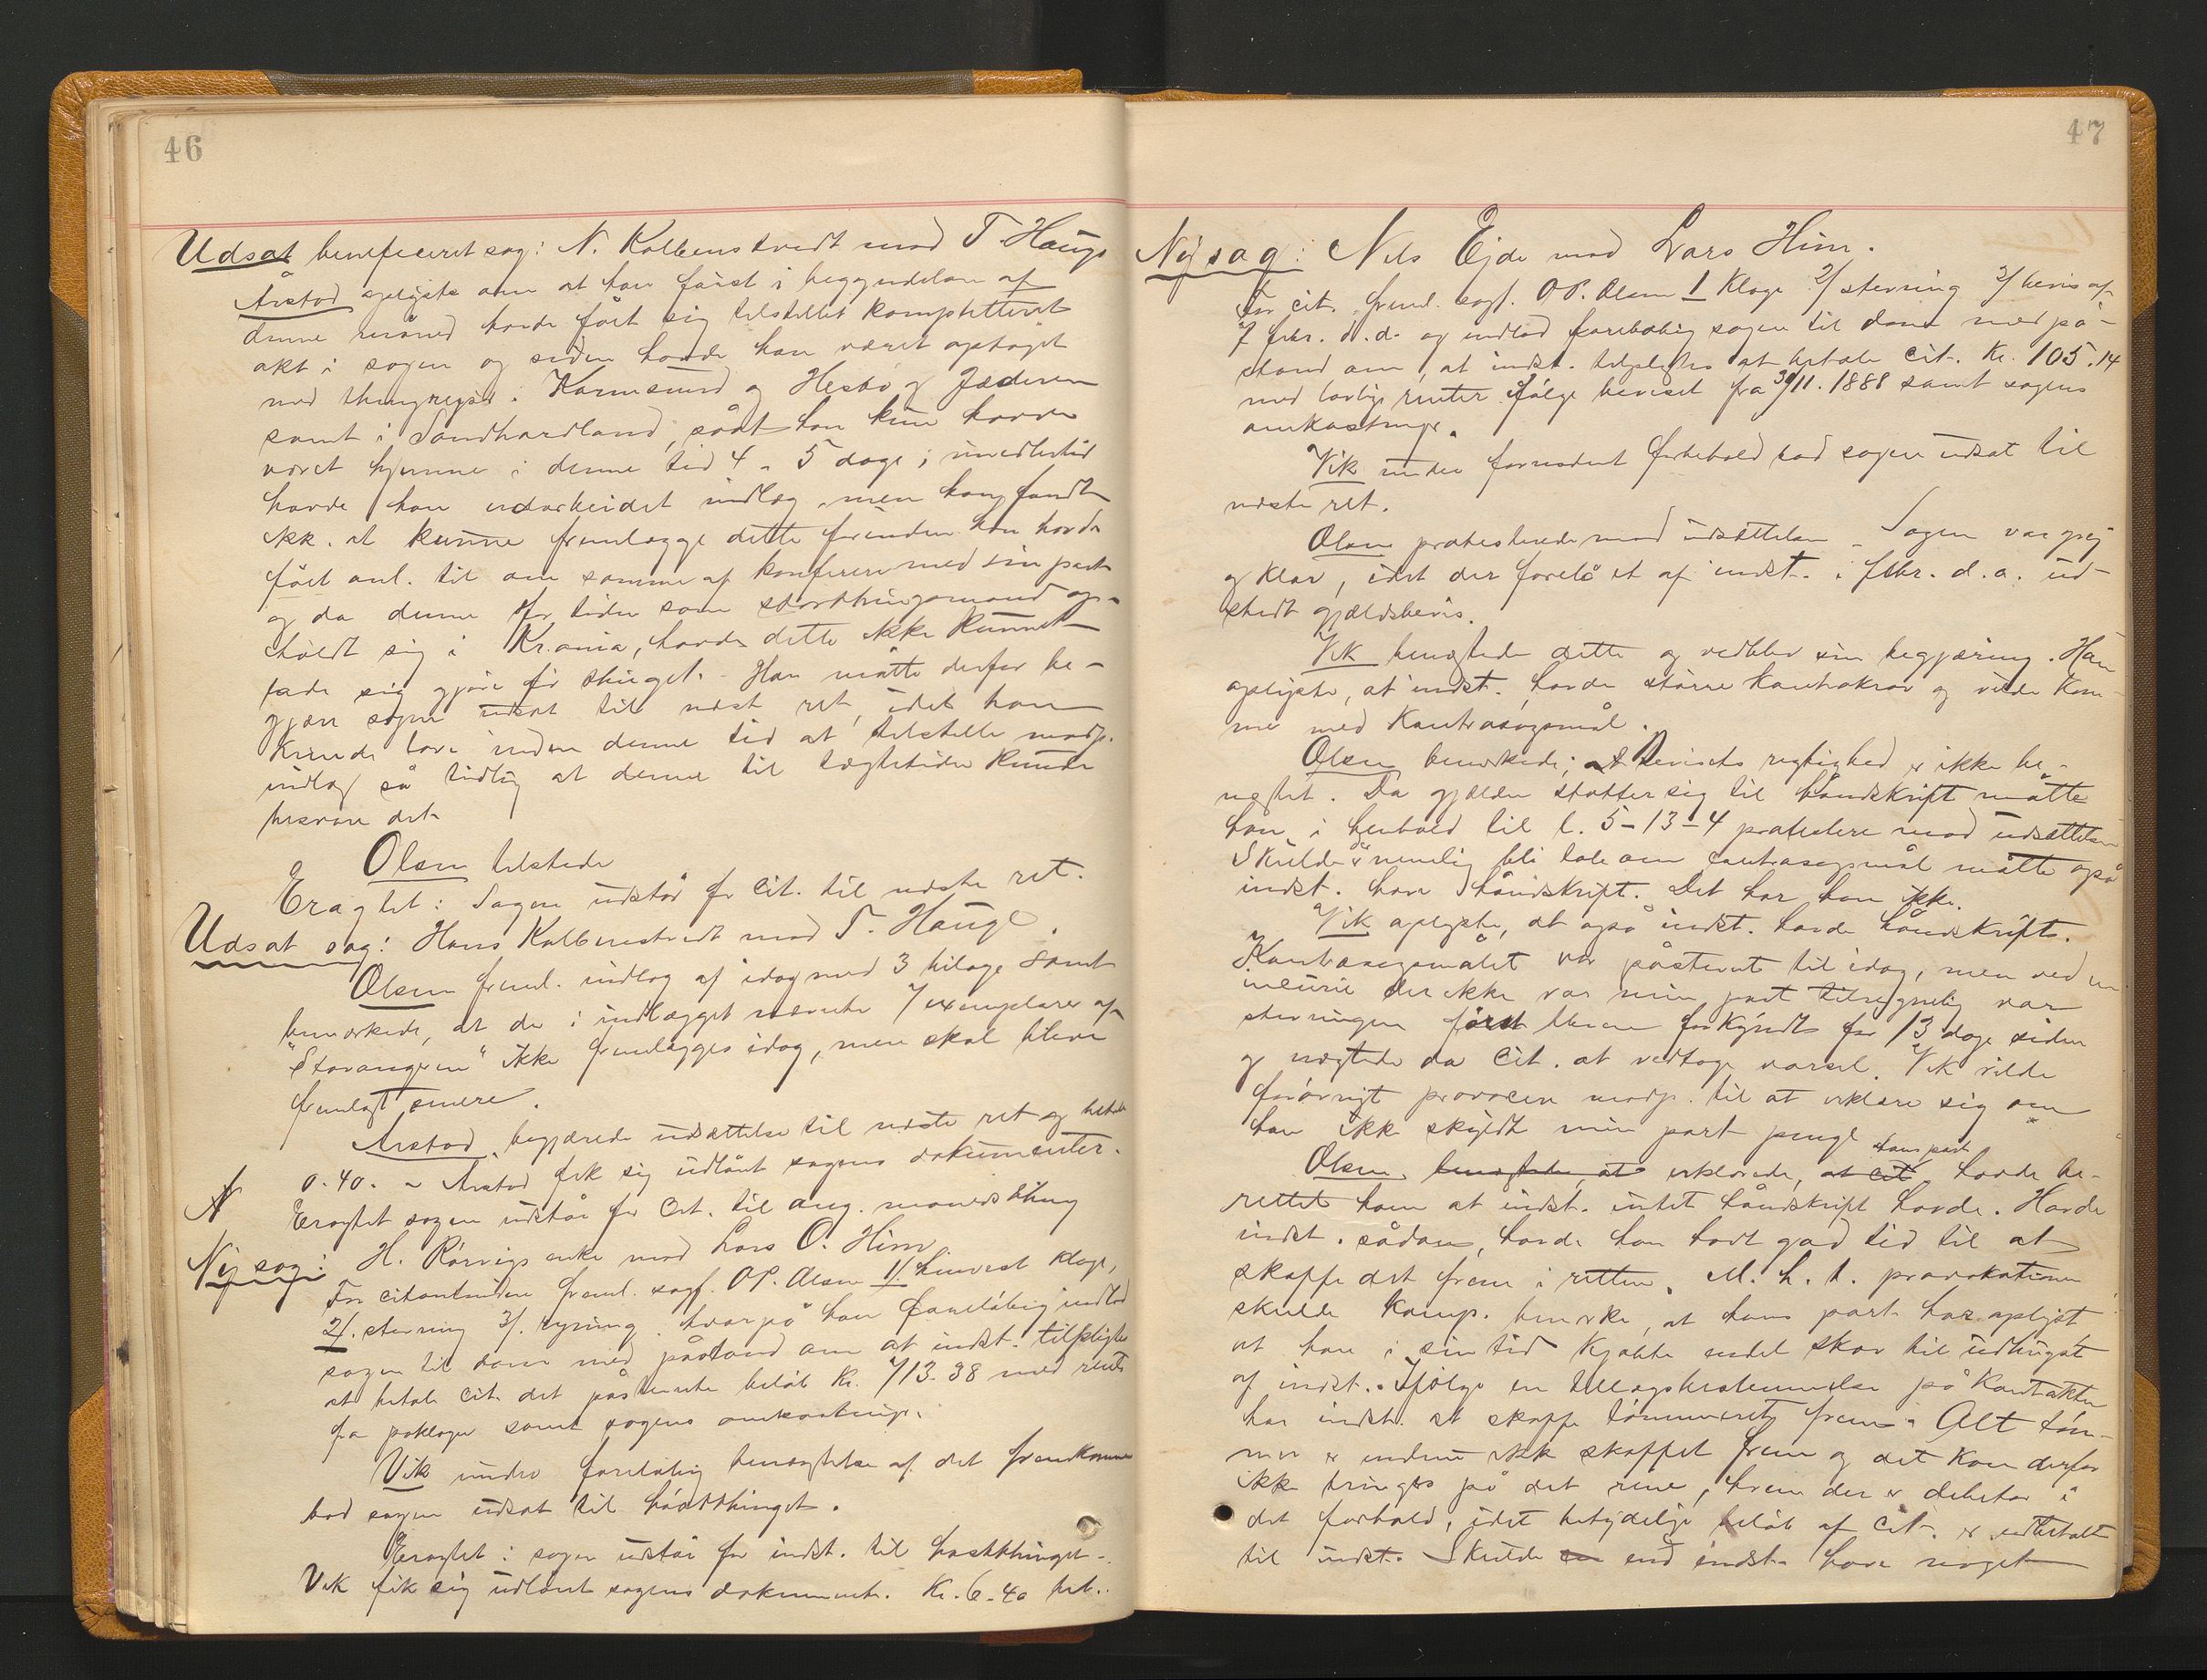 46
Udsat beneficeret sag: N. Kolbenstvedt mod T. Hauge
Årstad oplyste om at han først i begyndelsen af
denne måned havde fået sig tilstillet kompletteret
akt i sagen og siden havde han været optaget
med thingrejser i Karmsund og Hesbø og Jæderen
samt i Søndhordland, såat han kun havde
været hjemme i denne tid 4 - 5 dage; imedlertid
havde han udarbeidet indlæg, men han fandt
ikk. at kunne fremlægge dette forinden han havde
fået anl. til om samme at konferere med sin part
og da denne for tiden som storthingsmand op-
holdt sig i Kr.ania, havde dette ikke kunnet
lade sig gjøre før thinget. Han måtte derfor be-
gjære sagen udsat til næst ret, idet han
kunde love inden denne tid at tilstille modp.
indlæg så tidlig at denne til tægtetiden kunde
besvare det.
Olsen tilstede
Eragtet: Sagen udstår for cit. til næste ret.
Udsat sag: Hans Kolbenstvedt mod T. Hauge.
Olsen freml. indlæg af idag med 3 bilage samt
bemærkede, at de i indlægget nævnte 7 exemplarer af
"Stavangeren" ikke fremlægges idag, men skal blive
fremlagt senere.
Årstad begjærede udsættelse til næste ret og betalte
0.40. - Årstad fik sig udlånt sagens dokumenter.
Eragtet sagen udstår for cit. til aug. månedsthing
Ny sag: H. Rørvigs enke mod Lars O. Him
For citantinden freml. sagf. O.P. Olsen 1/ henvist klage,
2/. stevning 3/. regning, hvorpå han foreløbig indlod
sagen til dom med påstand om at indst. tilpligtes
at betale cit. det påstevnte beløb Kr. 713.38 med rente
fra påklagen samt sagens omkostninger.
Vik under foreløbig benægtelse af det fremkomne
bad sagen udsat til høstthinget.
Eragtet: sagen udstår for indst. til høstthinget.
Vik fik sig udlånt sagens dokumenter. Kr. 6.40 bet..
47
Ny sag: Nils Ejde mod Lars Him.
For cit. freml. sagf. O.P. Olsen 1 Klage 2/ stevning 3/ bevis af
7 febr. d.a. og indlod foreløbig sagen til dom med på-
stand om, at indst. tilpligtes at betale cit. Kr. 105.14
med lovlige renter ifølge beviset fra 30/11. 1888 samt sagens
omkostninger.
Vik under fornødent forbehold bad sagen udsat til
næste ret.
Olsen protesterede mod udsættelsen - Sagen var grej
og klar, idet der forelå et af indst. i febr. d.a. ud-
stedt gjældsbevis.
Vik benægtede dette og vedblev sin begjæring. Han
oplyste, at indst. havde større kontrakrav og vilde kom-
me med kontrasøgsmål.
Olsen bemærkede; at bevisets rigtighed er ikke be-
nægtet. Da gjælden støtter sig til håndskrift måtte
han i henhold til l. 5-13-4 protestere mod udsættelsen
Skulde der nemlig bli tale om contrasøgsmål måtte også
indst. have håndskrift. Det har han ikke.
Vik oplyste, at også indst. havde håndskrift.
Kontrasøgsmålet var påstevnt til idag, men ved en
incurie der ikke var min part tilregnelig var
stevningen først bleven forkyndt for 13 dage siden
og nægtede da cit. at vedtage varsel. Vik vilde
forøvrigt provocere modp. til at erklære sig om
han ikke skyldte min part penge
Olsen benægtede, at erklærede, at cit hans part havde be-
rettet ham at indst. intet håndskrift havde. Havde
indst. sådan, havde han havt god tid til at
skaffe det frem i retten. M. h. t. provokationen
skulde komp. bemærke, at hans part har oplyst
at han i sin tid kjøbte endel skov til udhugst
af indst. Ifølge en tillægsbestemmelse på kontrakten
har indst. at skaffe tømmeret frem. Alt tøm-
mer er endnu ikk skaffet frem og det kan derfor
ikke bringes på det rene, hvem der er debitor i
det forhold, idet betydelige beløb af cit. er udbetalt
til indst. Skulde en end indst. have noget